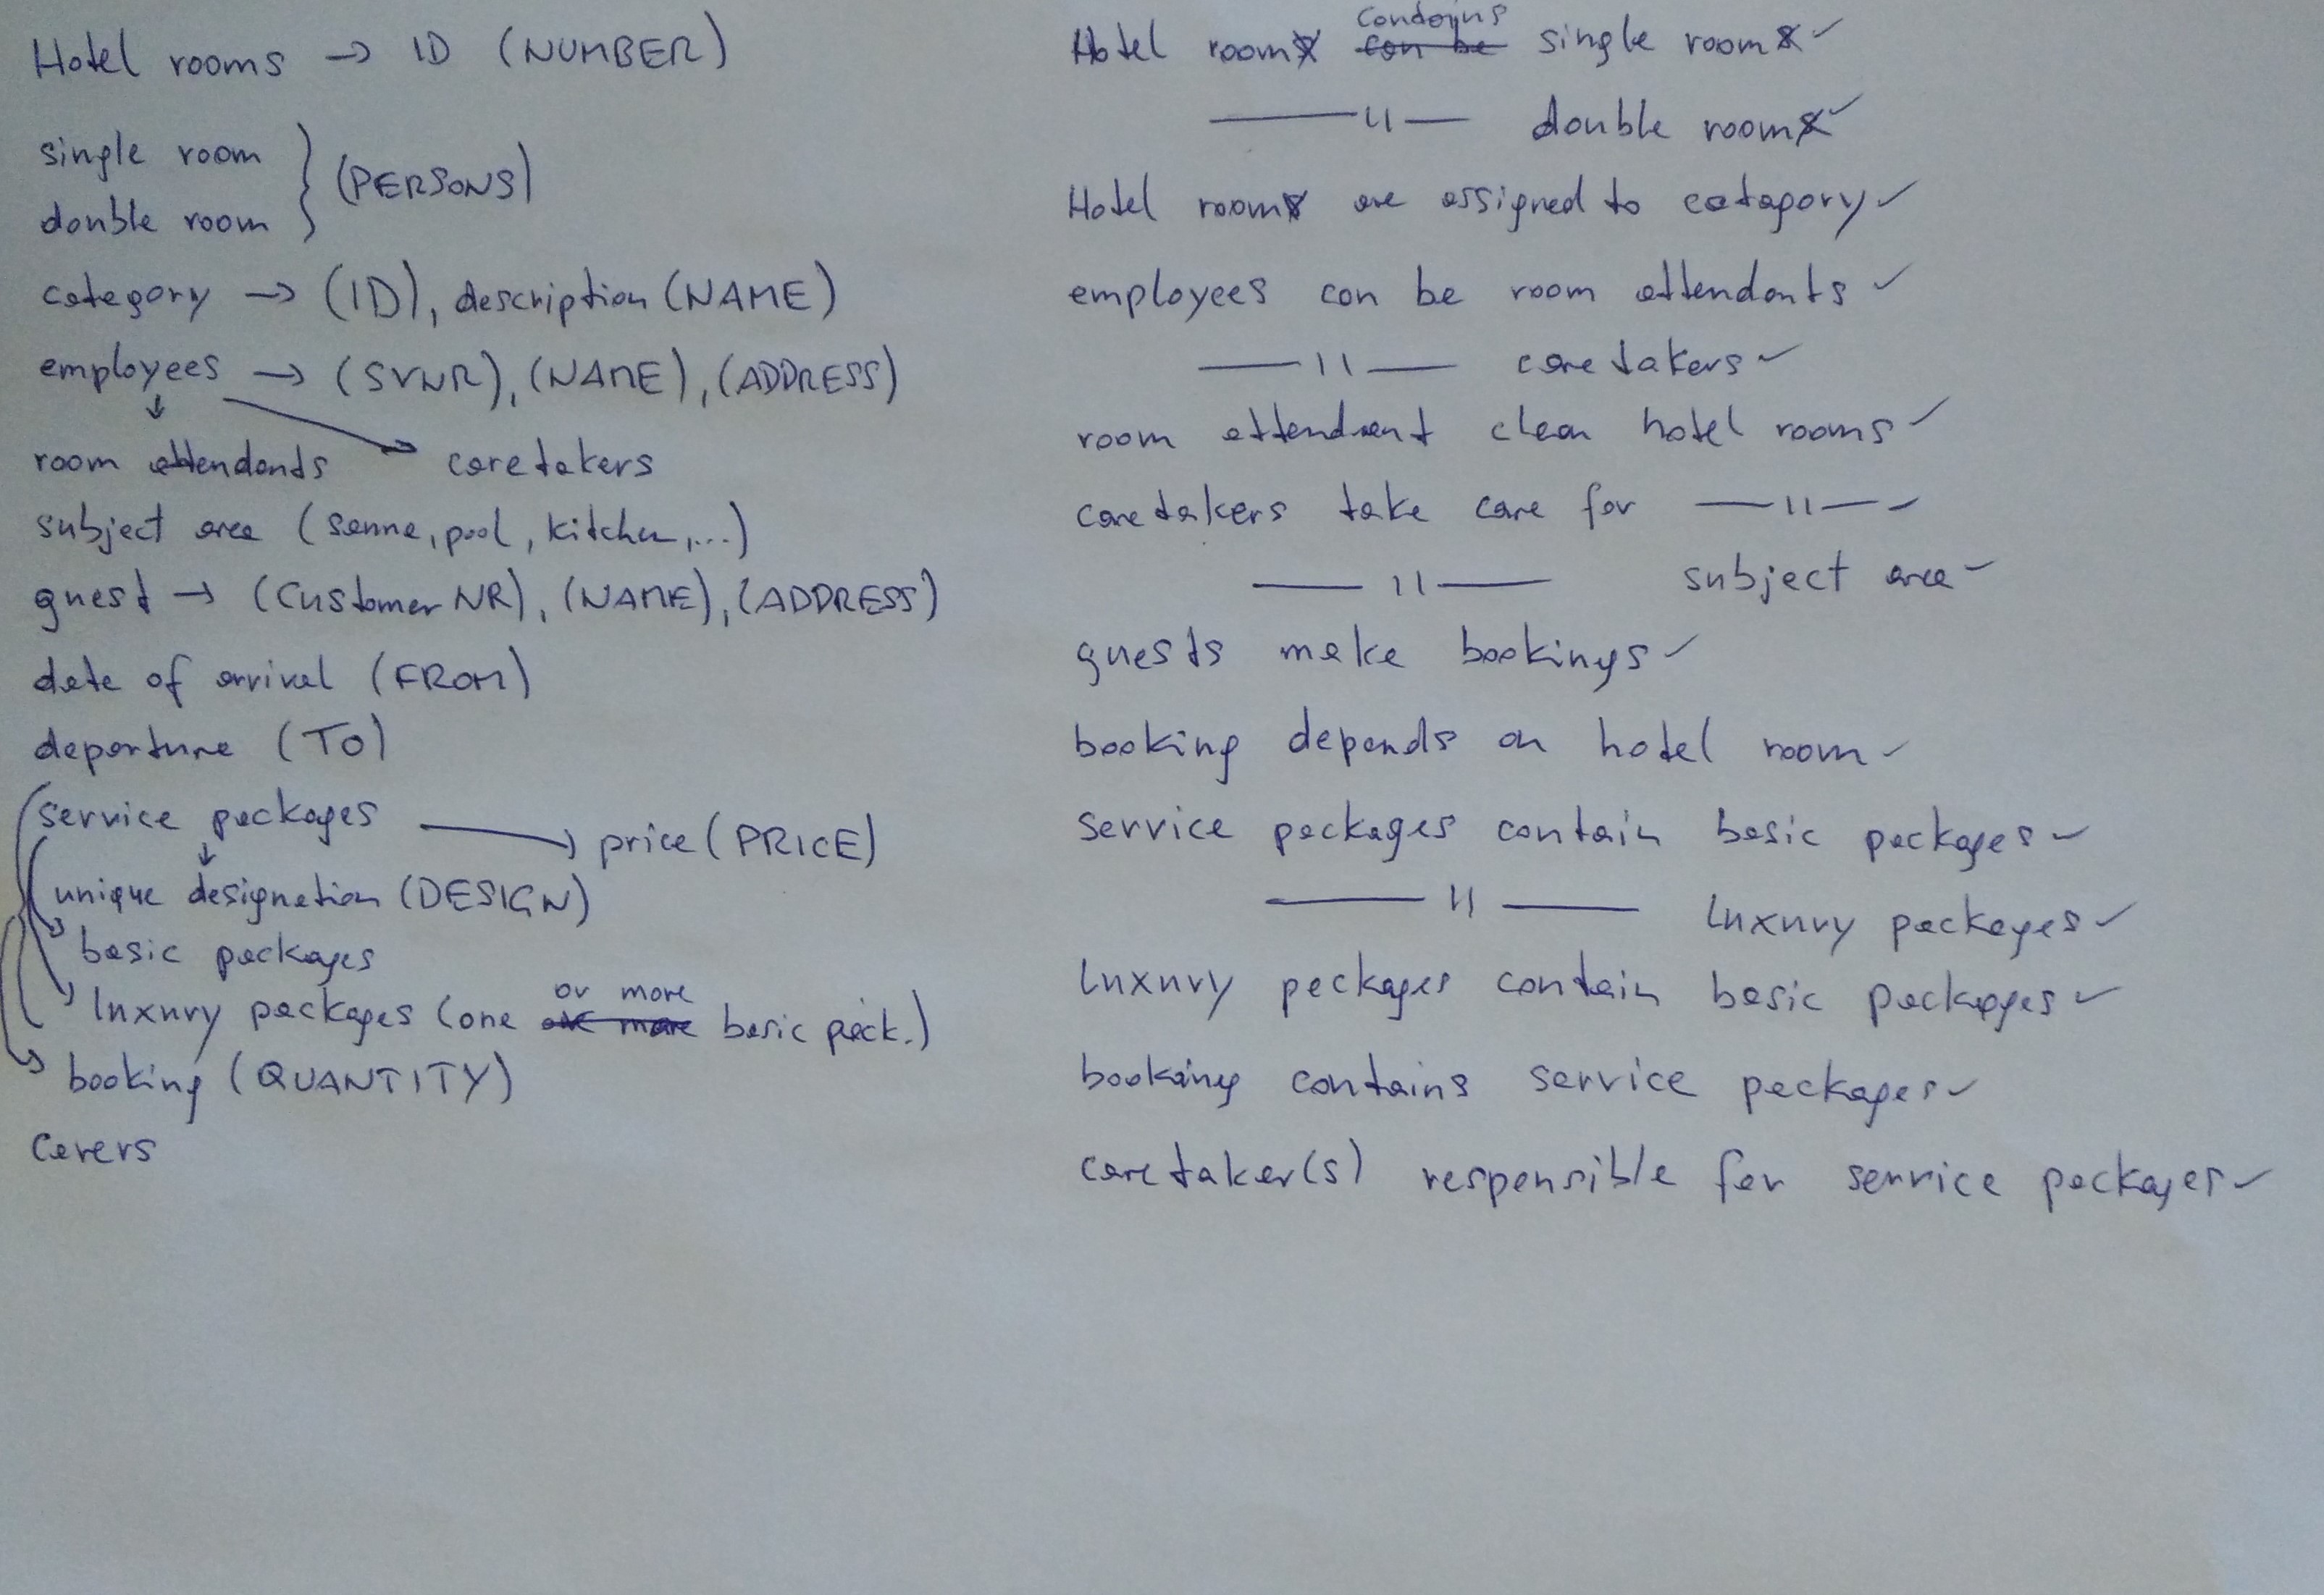 Hotel rooms → ID (NUMBER)
single room } (PERSONS)
double room
category → (ID), description (NAME)
employees → (SVNR), (NAME), (ADDRESS)
room attendants caretakers
subject area (sauna, pool, kitchen, ...)
guest → (Customer NR), (NAME), (ADDRESS)
date of arrival (FROM)
departure (TO)
service packages → price (PRICE)
unique designation (DESIGN)
basic packages
luxury packages (one or more basic pack.)
booking (QUANTITY)
Carers
Hotel room contains single room ✓
—— 11 — double room ✓
Hotel room are assigned to category ✓
employees can be room attendants ✓
—— 11 —— caretakers ✓
room attendant clean hotel rooms ✓
caretakers take care for —— 11 —— ✓
—— 11 —— subject area ✓
guests make bookings ✓
booking depends on hotel room ✓
service packages contain basic packages ✓
—— 11 —— luxury packages ✓
luxury packages contain basic packages ✓
booking contains service packages ✓
caretaker(s) responsible for service packages ✓